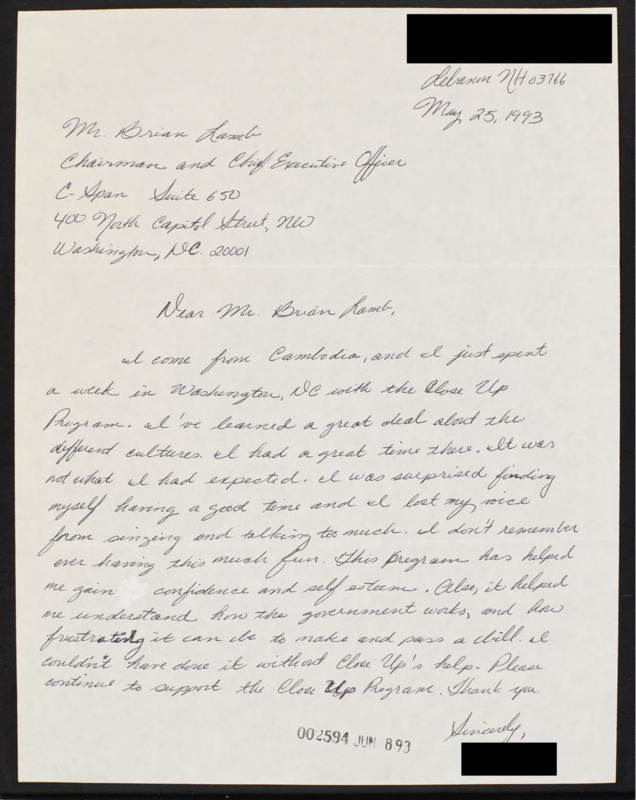 Lebanon NH 03766
May 25, 1993
Mr. Brian Lamb
Chairman and Chief Executive Officer
C-Span Suite 650
400 North Capitol Street, NW
Washington, DC. 20001
Dear Mr. Brian Lamb,
I come from Cambodia, and I just spent
a week in Washington, DC with the Close Up
Program. I've learned a great deal about the
different cultures. I had a great time there. It was
not what I had expected. I was surprised finding
myself having a good time and I lost my voice
from singing and talking too much. I don't remember
ever having this much fun. This program has helped
me gain confidence and self esteem. Also, it helped
me understand how the government works, and how
frustrating it can be to make and pass a bill. I
couldn't have done it without Close Up's help. Please
continue to support the Close Up Program. Thank you
Sincerely,
002594 JUN 8 93